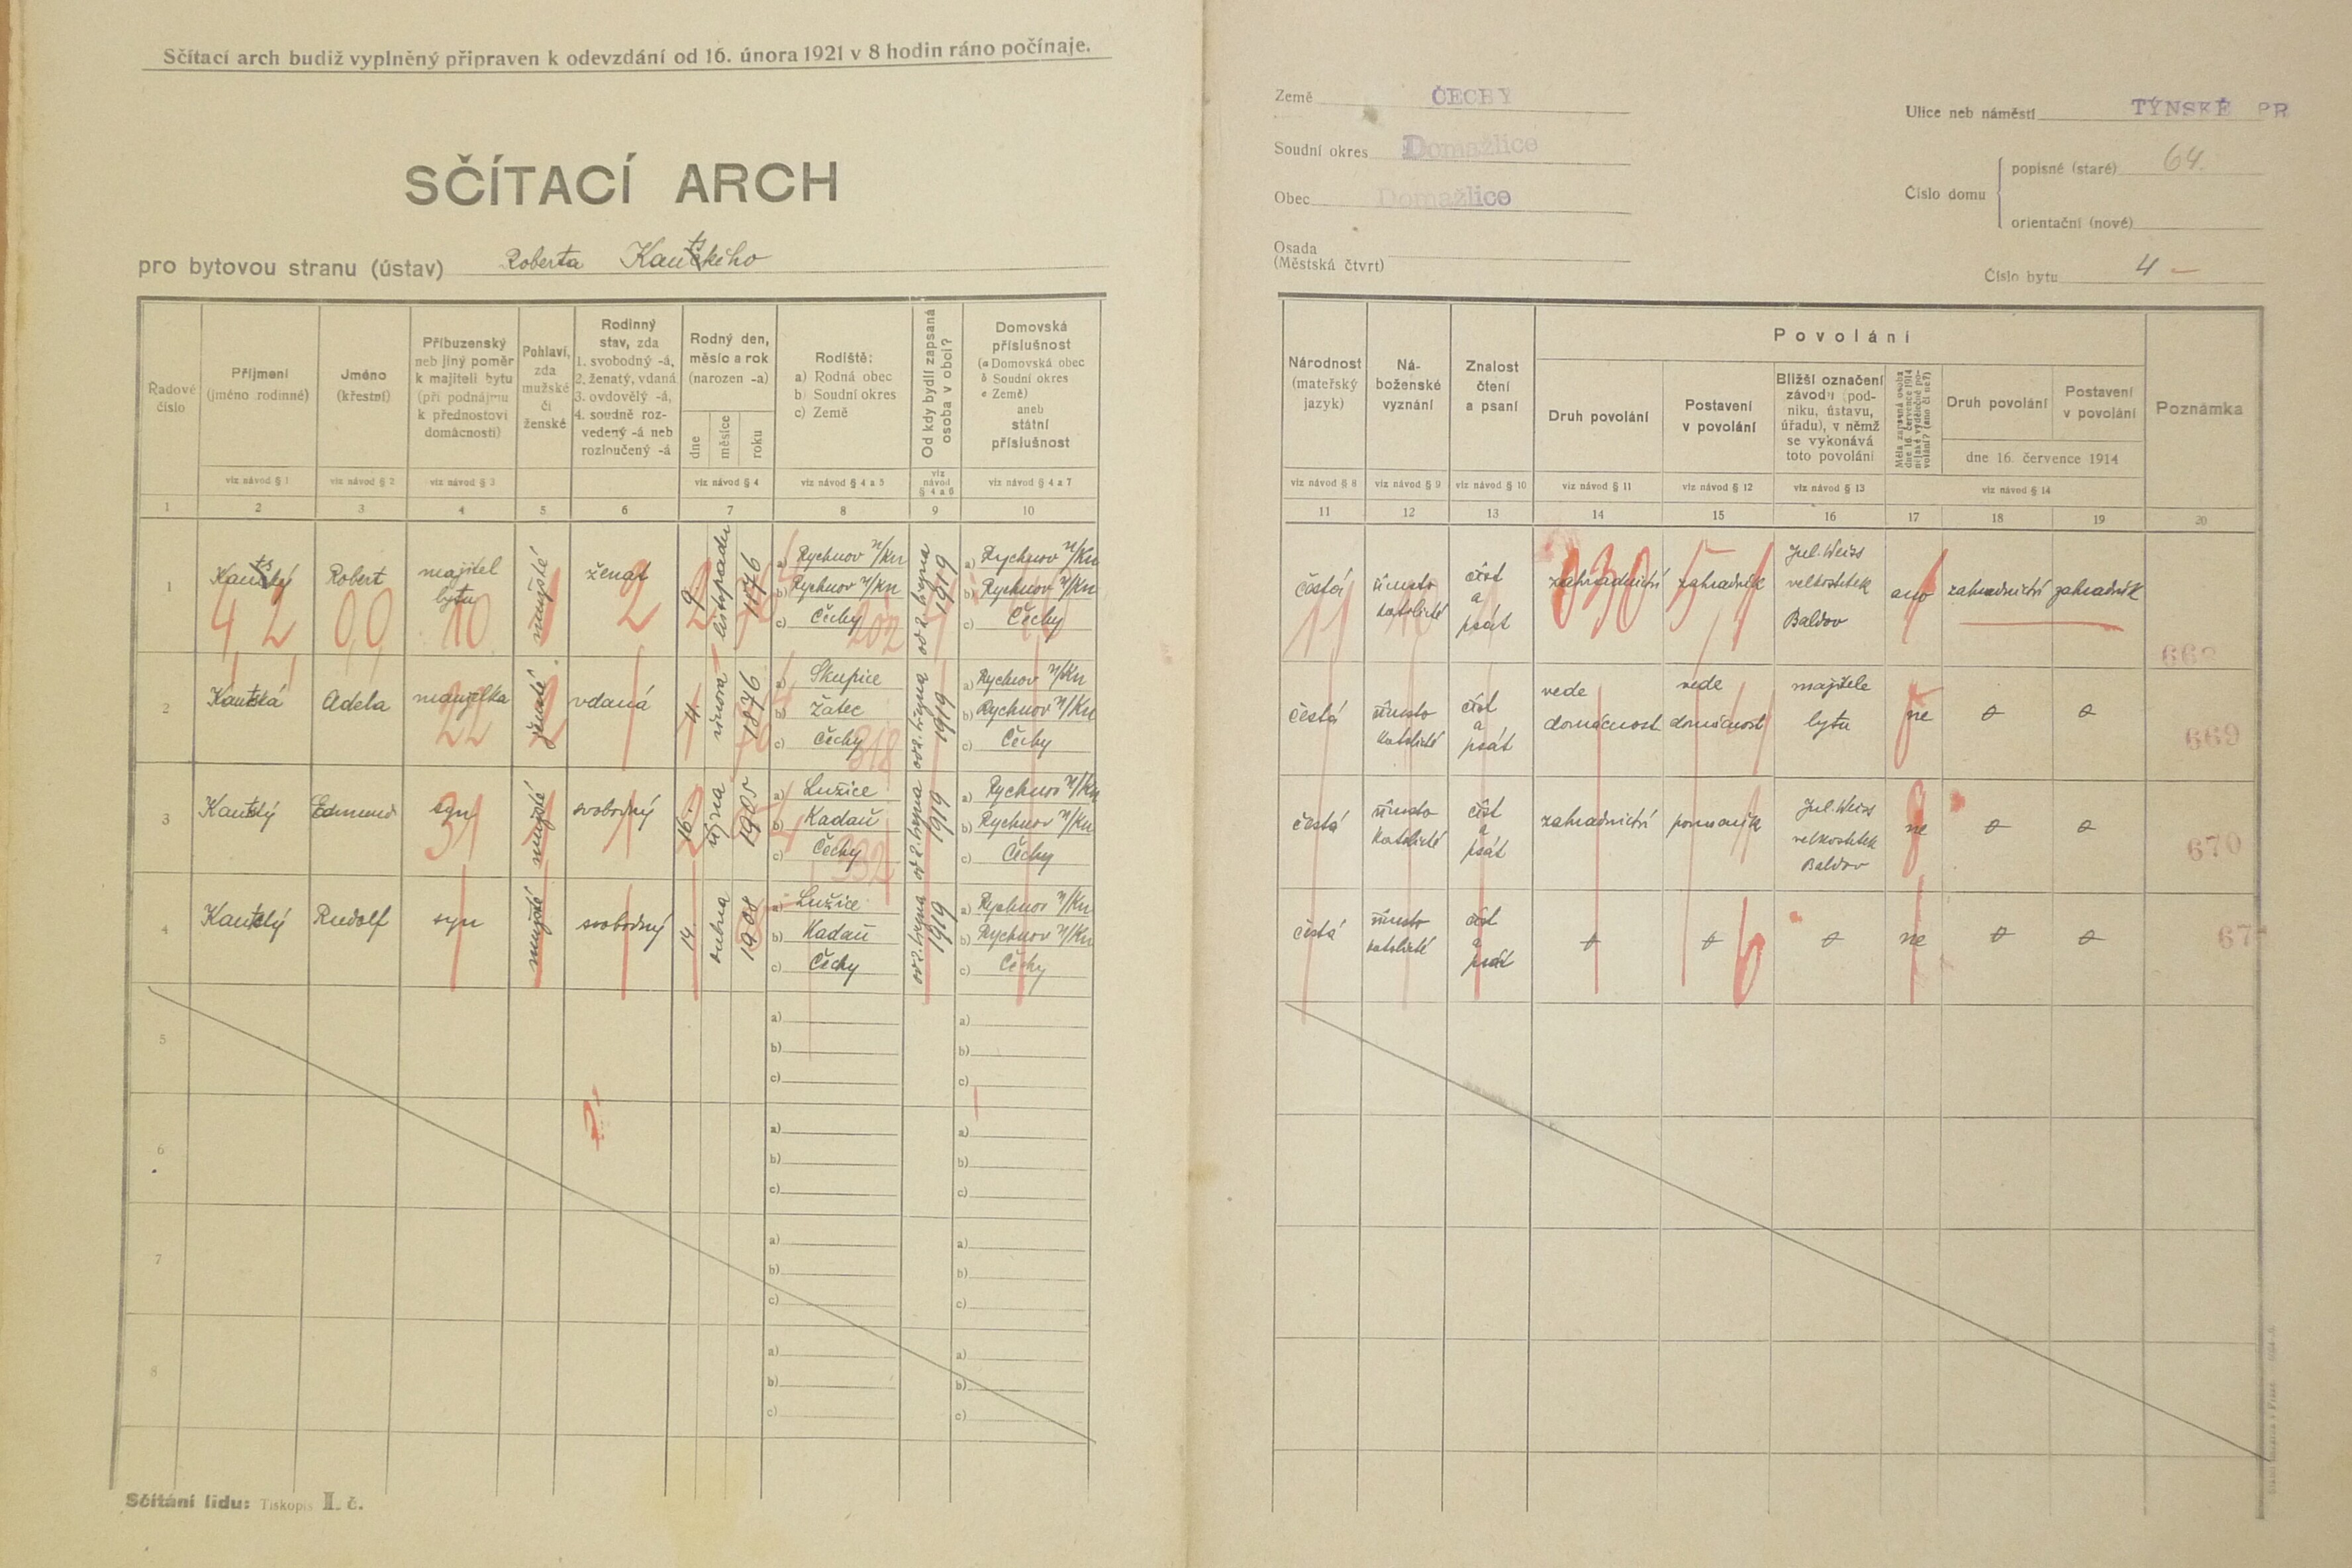 Sčítací arch budiž vyplněný připraven k odevzdání od 16. února 1921 v 8 hodin ráno počínaje.
SČÍTACÍ ARCH
pro bytovou stranu (ústav) Roberta Kautského
Země ČECHY
Soudní okres Domažlice
Obec Domažlice
Osada
(Městská čtvrť)
Ulice neb náměstí TÝNSKÉ PR
Číslo domu
popisné (staré) 64.
orientační (nové)
Číslo bytu 4 –
Řadové číslo
Příjmení (jméno rodinné)
Jméno (křestní)
Příbuzenský neb jiný poměr k majiteli bytu (při podnájmu k přednostovi domácnosti)
Pohlaví, zda mužské či ženské
Rodinný stav, zda 1. svobodný -á, 2. ženatý, vdaná 3. ovdovělý -á, 4. soudně rozvedený -á neb rozloučený -á
Rodný den, měsíc a rok (narozen -a)
dne
měsíce
roku
Rodiště: a) Rodná obec b) Soudní okres c) Země
Od kdy bydlí zapsaná osoba v obci?
Domovská příslušnost (a Domovská obec b Soudní okres c Země) aneb státní příslušnost
viz návod § 1
viz návod § 2
viz návod § 3
viz návod § 4
viz návod § 4 a 5
viz návod § 4 a 6
viz návod § 4 a 7
1 2 3 4 5 6 7 8 9 10
Národnost (mateřský jazyk)
Náboženské vyznání
Znalost čtení a psaní
Povolání
Druh povolání
Postavení v povolání
Bližší označení závodu (podniku, ústavu, úřadu), v němž se vykonává toto povolání
Měla zapsaná osoba dne 16. července 1914 nějaké výdělečné povolání? (ano či ne?)
Druh povolání
Postavení v povolání
dne 16. července 1914
Poznámka
viz návod § 8
viz návod § 9
viz návod § 10
viz návod § 11
viz návod § 12
viz návod § 13
viz návod § 14
11 12 13 14 15 16 17 18 19 20
1 Kautský Robert majitel bytu mužské ženat 9. listopadu 1876
a) Rychnov n/Kn
b) Rychnov n/Kn
c) Čechy
od 2. srpna 1919
a) Rychnov n/Kn
b) Rychnov n/Kn
c) Čechy
4 2 0,0 10 1 2 2 202
česká římsko katolické číst a psát zahradnictví zahradník Jul. Weiss velkostatek Baldov ano zahradnictví zahradník
11 10 030 51
668
2 Kautská Adela manželka ženské vdaná 4. února 1876
a) Skupice
b) Žatec
c) Čechy
od 2. srpna 1919
a) Rychnov n/Kn
b) Rychnov n/Kn
c) Čechy
22 2 318
česká římsko katolické číst a psát vede domácnost vede domácnost majitele bytu ne
669
3 Kautský Edmund syn mužské svobodný 16. října 1905
a) Lužice
b) Kadaň
c) Čechy
od 2. srpna 1919
a) Rychnov n/Kn
b) Rychnov n/Kn
c) Čechy
31 332
česká římsko katolické číst a psát zahradnictví pomocník Jul. Weiss velkostatek Baldov ne
670
4 Kautský Rudolf syn mužské svobodný 14. dubna 1908
a) Lužice
b) Kadaň
c) Čechy
od 2. srpna 1919
a) Rychnov n/Kn
b) Rychnov n/Kn
c) Čechy
česká římsko katolické číst a psát ne
6
67
5
a)
b)
c)
a)
b)
c)
6
a)
b)
c)
a)
b)
c)
7
a)
b)
c)
a)
b)
c)
8
a)
b)
c)
a)
b)
c)
Sčítání lidu: Tiskopis II. č.